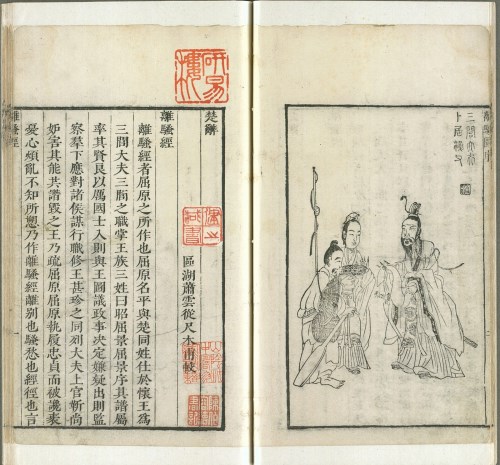 三閭大夫
卜居漁父
研易樓
楚辭
區湖蕭雲從尺木甫較
離騷經
離騷經者屈原之所作也屈原名平與楚同姓仕於懷王為
三閭大夫三閭之職掌王族三姓曰昭屈景屈原序其譜屬
率其賢良以厲國士入則與王圖議政事決定嫌疑出則監
察羣下應對諸侯謀行職修王甚珍之同列大夫上官靳尚
妒害其能共譖毀之王乃疏屈原屈原執履忠貞而被讒衺
憂心煩亂不知所愬乃作離騷經離別也騷愁也經徑也言
離騷經